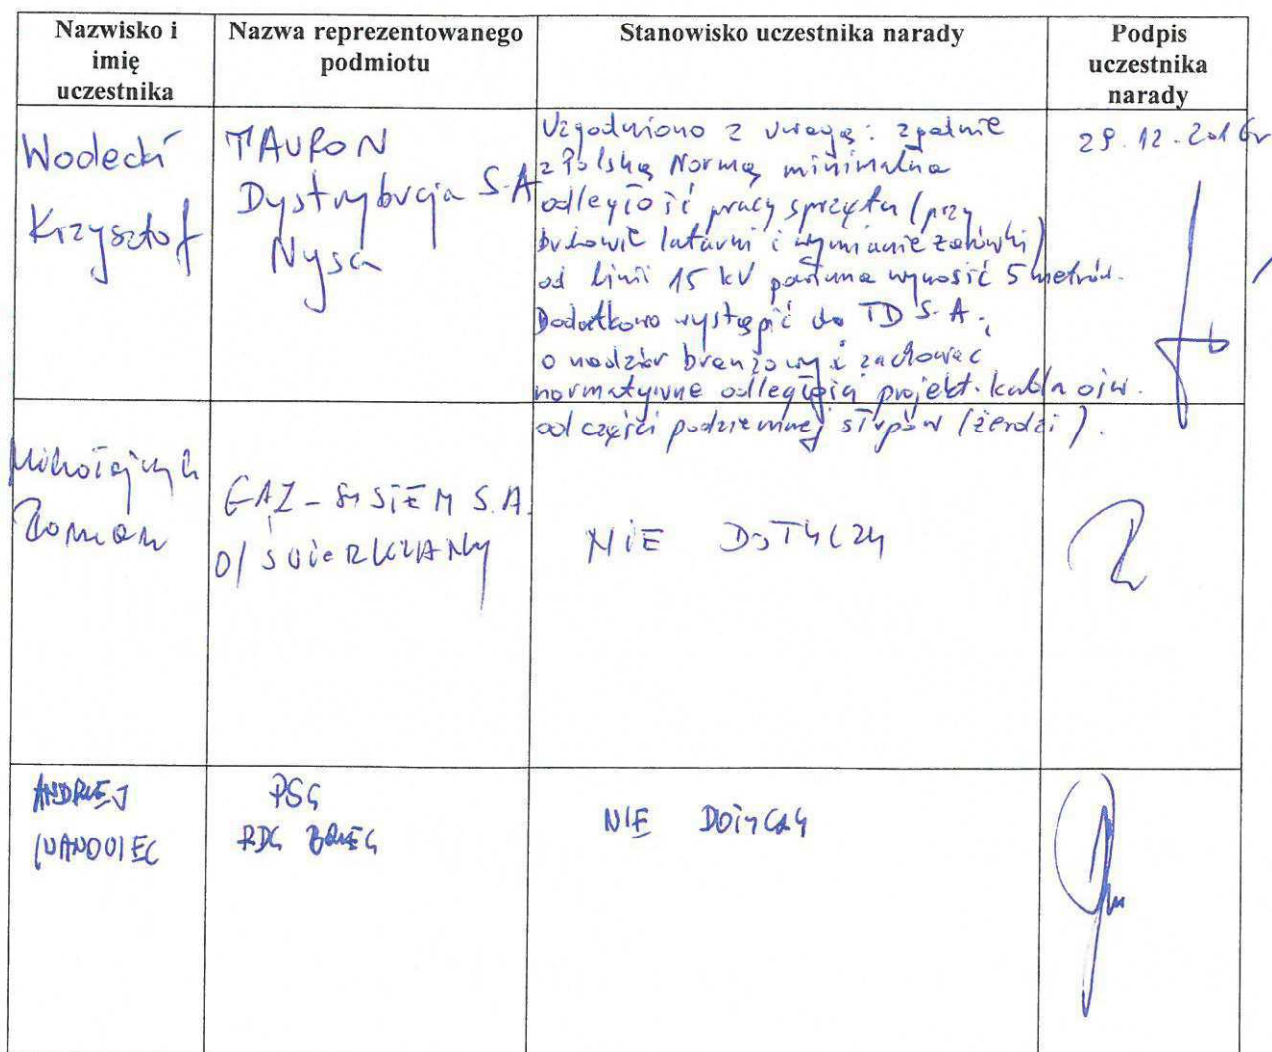 Nazwisko i
imię
uczestnika
Nazwa reprezentowanego
podmiotu
Stanowisko uczestnika narady
Podpis
uczestnika
narady
Wodecki
Krzysztof
TAURON
Dystrybucja S.A
Nysa
Uzgodniono z uwagą: zgodnie
z Polską Normą minimalna
odległość pracy sprzętu (przy
budowie latarni i wymianie żarówki)
od linii 15 kV powinna wynosić 5 metrów.
Dodatkowo wystąpić do TD S.A.
o nadzór branżowy i zachować
normatywne odległości projekt. kabla ośw.
od części podziemnej słupów (żerdzi).
29.12.2016r
Mikołajczyk
Roman
GAZ-SYSTEM S.A.
O/ŚWIERKLANY
NIE DOTYCZY
ANDRZEJ
PSG
RDG BRZEG
NIE DOTYCZY